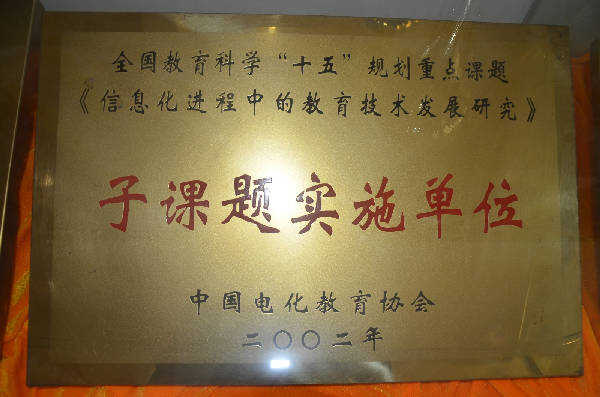 全国教育科学“十五”规划重点课题
《信息化进程中的教育技术发展研究》
子课题实施单位
中国电化教育协会
二〇〇二年